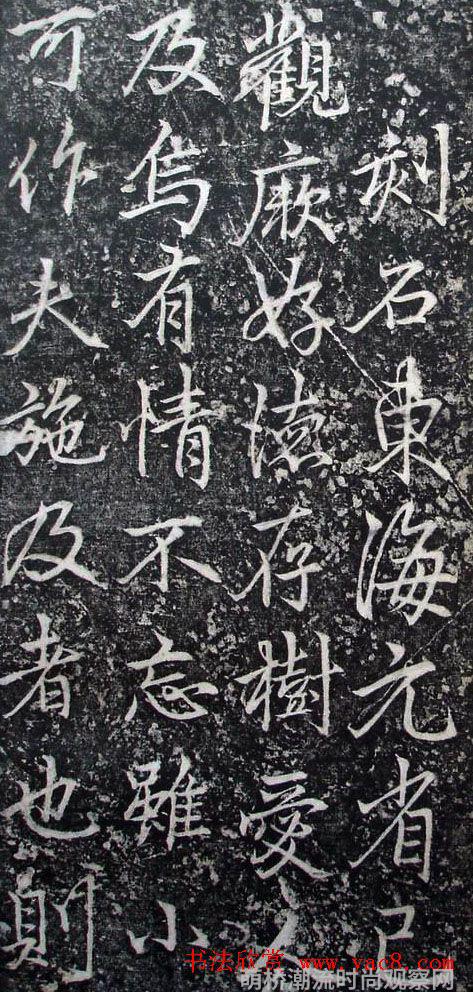 刻石東海元省己
觀厥好德存樹愛人
及烏有情不忘雖小
可作夫施及者也則
书法欣赏 www.yac8.com
萌桥潮流时尚观察网